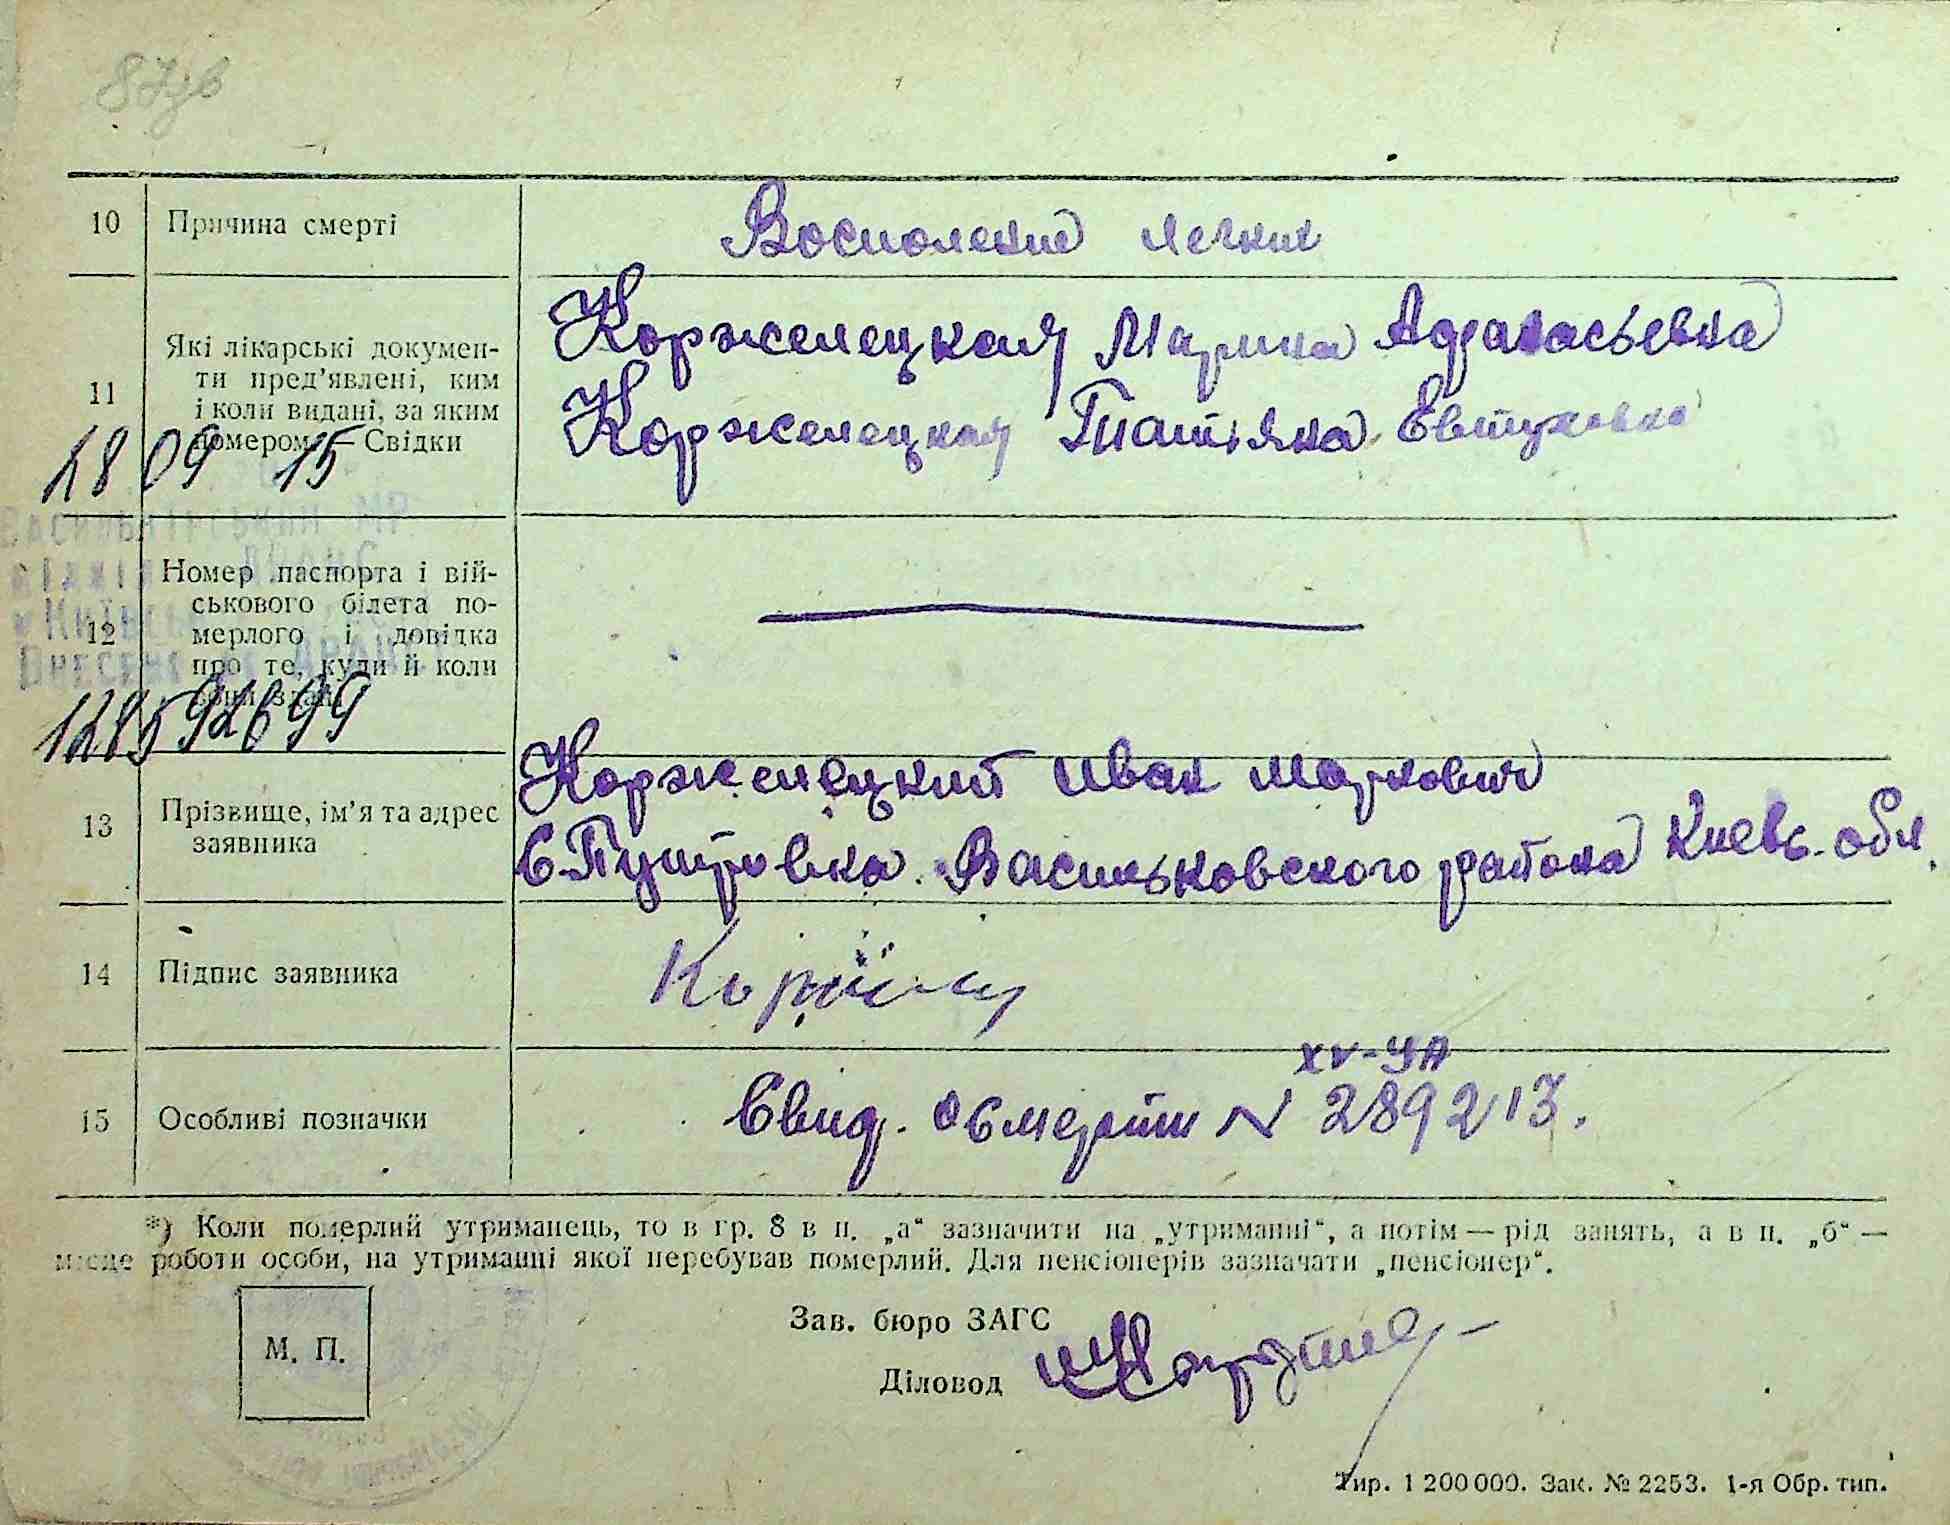 10 Причина смерті Восполение легких
11 Які лікарські докумен-
ти пред'явлені, ким
і коли видані, за яким
номером — Свідки
Коржелецкая Марина Афанасьевна
Коржелецкая Татьяна Евтуховна
28 09 15
Васильківський МР
12 Номер паспорта і вій-
ськового білета по-
мерлого і довідка
про те, куди й коли
вони здані
128592699
13 Прізвище, ім'я та адрес
заявника
Коржелецкий Иван Маркович
С. Путровка. Васильковского района Киевс. обл.
14 Підпис заявника
15 Особливі позначки
XV-УА
Свид. о смерти N 289213.
*) Коли померлий утриманець, то в гр. 8 в п. „а“ зазначити на „утриманні“, а потім — рід занять, а в п. „б“ —
місце роботи особи, на утриманні якої перебував померлий. Для пенсіонерів зазначати „пенсіонер“.
М. П.
Зав. бюро ЗАГС
Діловод
Тир. 1 200 000. Зак. № 2253. 1-я Обр. тип.